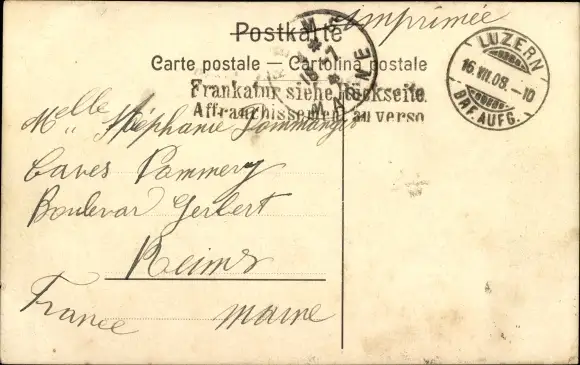 Postkarte Imprimée
Carte postale — Cartolina postale
Frankatur siehe Rückseite.
Affranchissement au verso
LUZERN
16.VII.08.–10
BRF.AUFG.
MARNE
Melle Stéphanie Dommanget
Caves Pommery
Boulevar Gerbert
Reims
France Marne